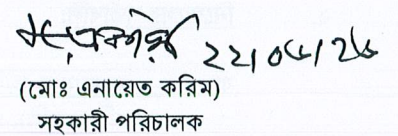 ২২/০৫/২৫
(মোঃ এনায়েত করিম)
সহকারী পরিচালক